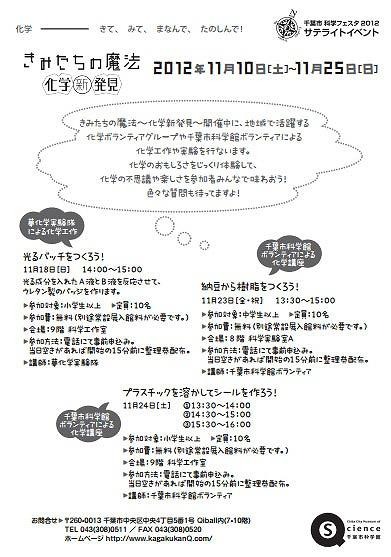 化学 きて、みて、まなんで、たのしんで!
千葉市 科学フェスタ2012
サテライトイベント
きみたちの魔法
化学新発見
2012年11月10日[土]~11月25日[日]
きみたちの魔法~化学新発見~開催中に、地域で活躍する
化学ボランティアグループや千葉市科学館ボランティアによる
化学工作や実験を行ないます。
化学のおもしろさをじっくり体験して、
化学の不思議や楽しさを参加者みんなで味わおう!
色々な質問も待ってますよ!
夢化学実験隊
による化学工作
光るバッチをつくろう!
11月18日[日] 14:00~15:00
光る成分を入れたA液とB液を反応させて、
ウレタン製のバッジを作ります。
▶参加対象:小学生以上 ▶定員:10名
▶参加費:無料(別途常設展入館料が必要です。)
▶会場:9階 科学工作室
▶参加方法:電話にて事前申込み。
当日空きがあれば開始の15分前に整理券配布。
▶講師:夢化学実験隊
千葉市科学館
ボランティアによる
化学講座
納豆から樹脂をつくろう!
11月23日[金・祝] 13:30~15:00
▶参加対象:中学生以上 ▶定員:10名
▶参加費:無料(別途常設展入館料が必要です。)
▶会場:8階 科学実験室A
▶参加方法:電話にて事前申込み。
当日空きがあれば開始の15分前に整理券配布。
▶講師:千葉市科学館ボランティア
千葉市科学館
ボランティアによる
化学講座
プラスチックを溶かしてシールを作ろう!
11月24日[土] ①13:30~14:00
②14:30~15:00
③15:30~16:00
▶参加対象:小学生以上 ▶定員:10名
▶参加費:無料(別途常設展入館料が必要です。)
▶会場:9階 科学工作室
▶参加方法:電話にて事前申込み。
当日空きがあれば開始の15分前に整理券配布。
▶講師:千葉市科学館ボランティア
お問合せ▶〒260-0013 千葉市中央区中央4丁目5番1号 Qiball内(7・10階)
TEL 043(308)0511 / FAX 043(308)0520
ホームページ http://www.kagakukanQ.com/
Chiba City Museum of
Science
千葉市科学館